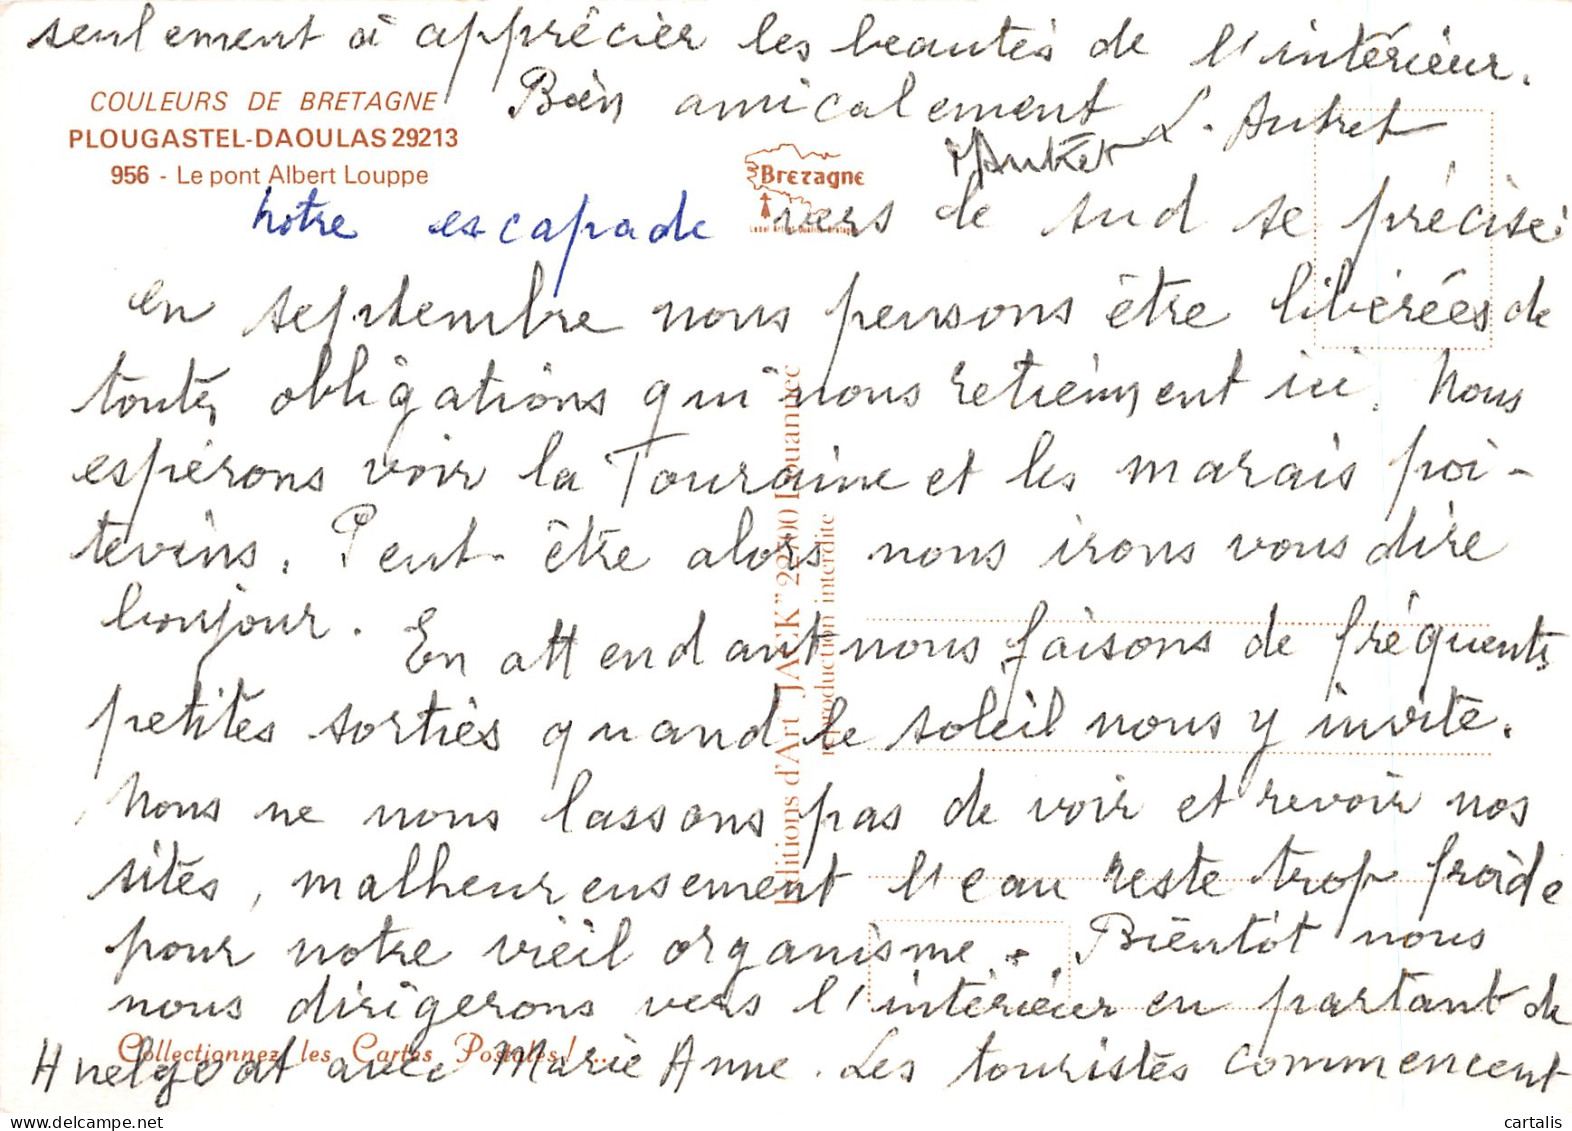 seulement à apprécier les beautés de l'intérieur.
Bien amicalement
L. Autret
Autret
COULEURS DE BRETAGNE
PLOUGASTEL-DAOULAS 29213
956 - Le pont Albert Louppe
Bretagne
notre escapade vers le sud se précise:
en septembre nous pensons être libérées de
toutes obligations qui nous retiennent ici. Nous
espérons voir la Touraine et les marais poi-
tevins. Peut-être alors nous irons vous dire
bonjour. En attendant nous faisons de fréquentes
petites sorties quand le soleil nous y invite.
Nous ne nous lassons pas de voir et revoir nos
sites, malheureusement l'eau reste trop froide
pour notre vieil organisme. Bientôt nous
nous dirigerons vers l'intérieur en partant de
Huelgoat avec Marie Anne. Les touristes commencent
Collectionnez les Cartes Postales ! ...
Editions d'Art "JACK" 29100 Douarnenez
reproduction interdite
cartalis